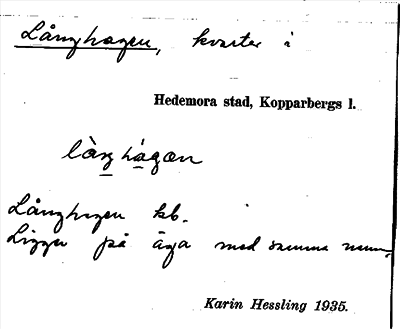 Långhagen, kvarter i
Hedemora stad, Kopparbergs l.
làŋhàgan
Långhagen kb.
Ligger på äga med samma namn.
Karin Hessling 1935.